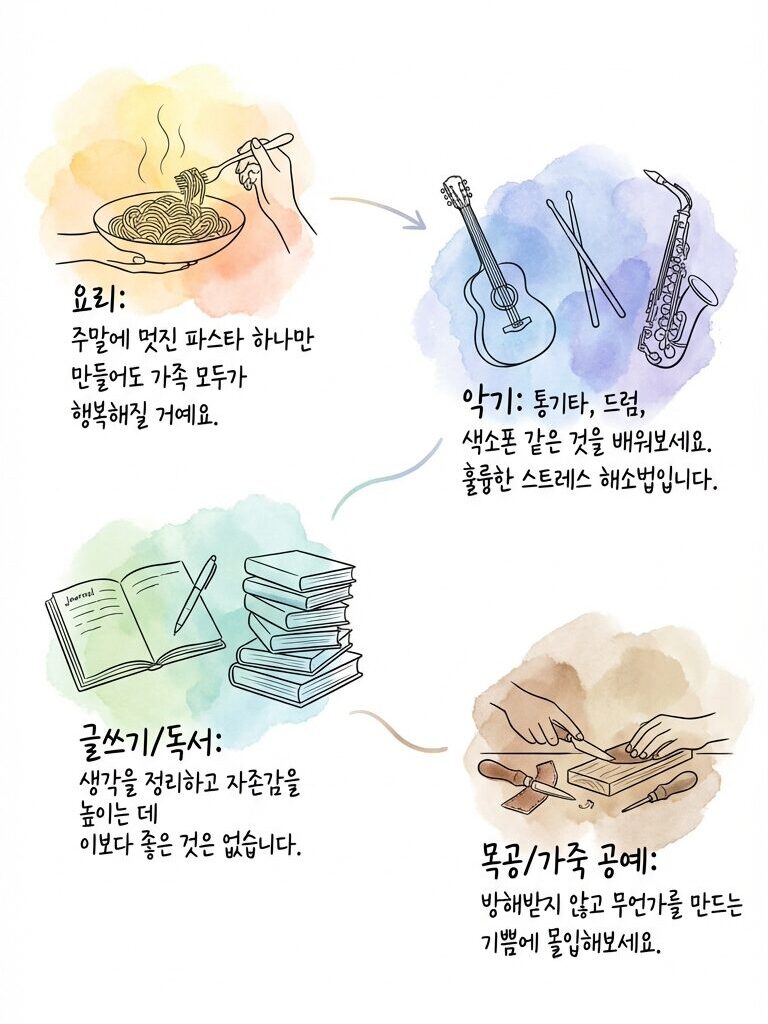 요리:
주말에 멋진 파스타 하나만
만들어도 가족 모두가
행복해질 거예요.
악기: 통기타, 드럼,
색소폰 같은 것을 배워보세요.
훌륭한 스트레스 해소법입니다.
Journal
글쓰기/독서:
생각을 정리하고 자존감을
높이는 데
이보다 좋은 것은 없습니다.
목공/가죽 공예:
방해받지 않고 무언가를 만드는
기쁨에 몰입해보세요.